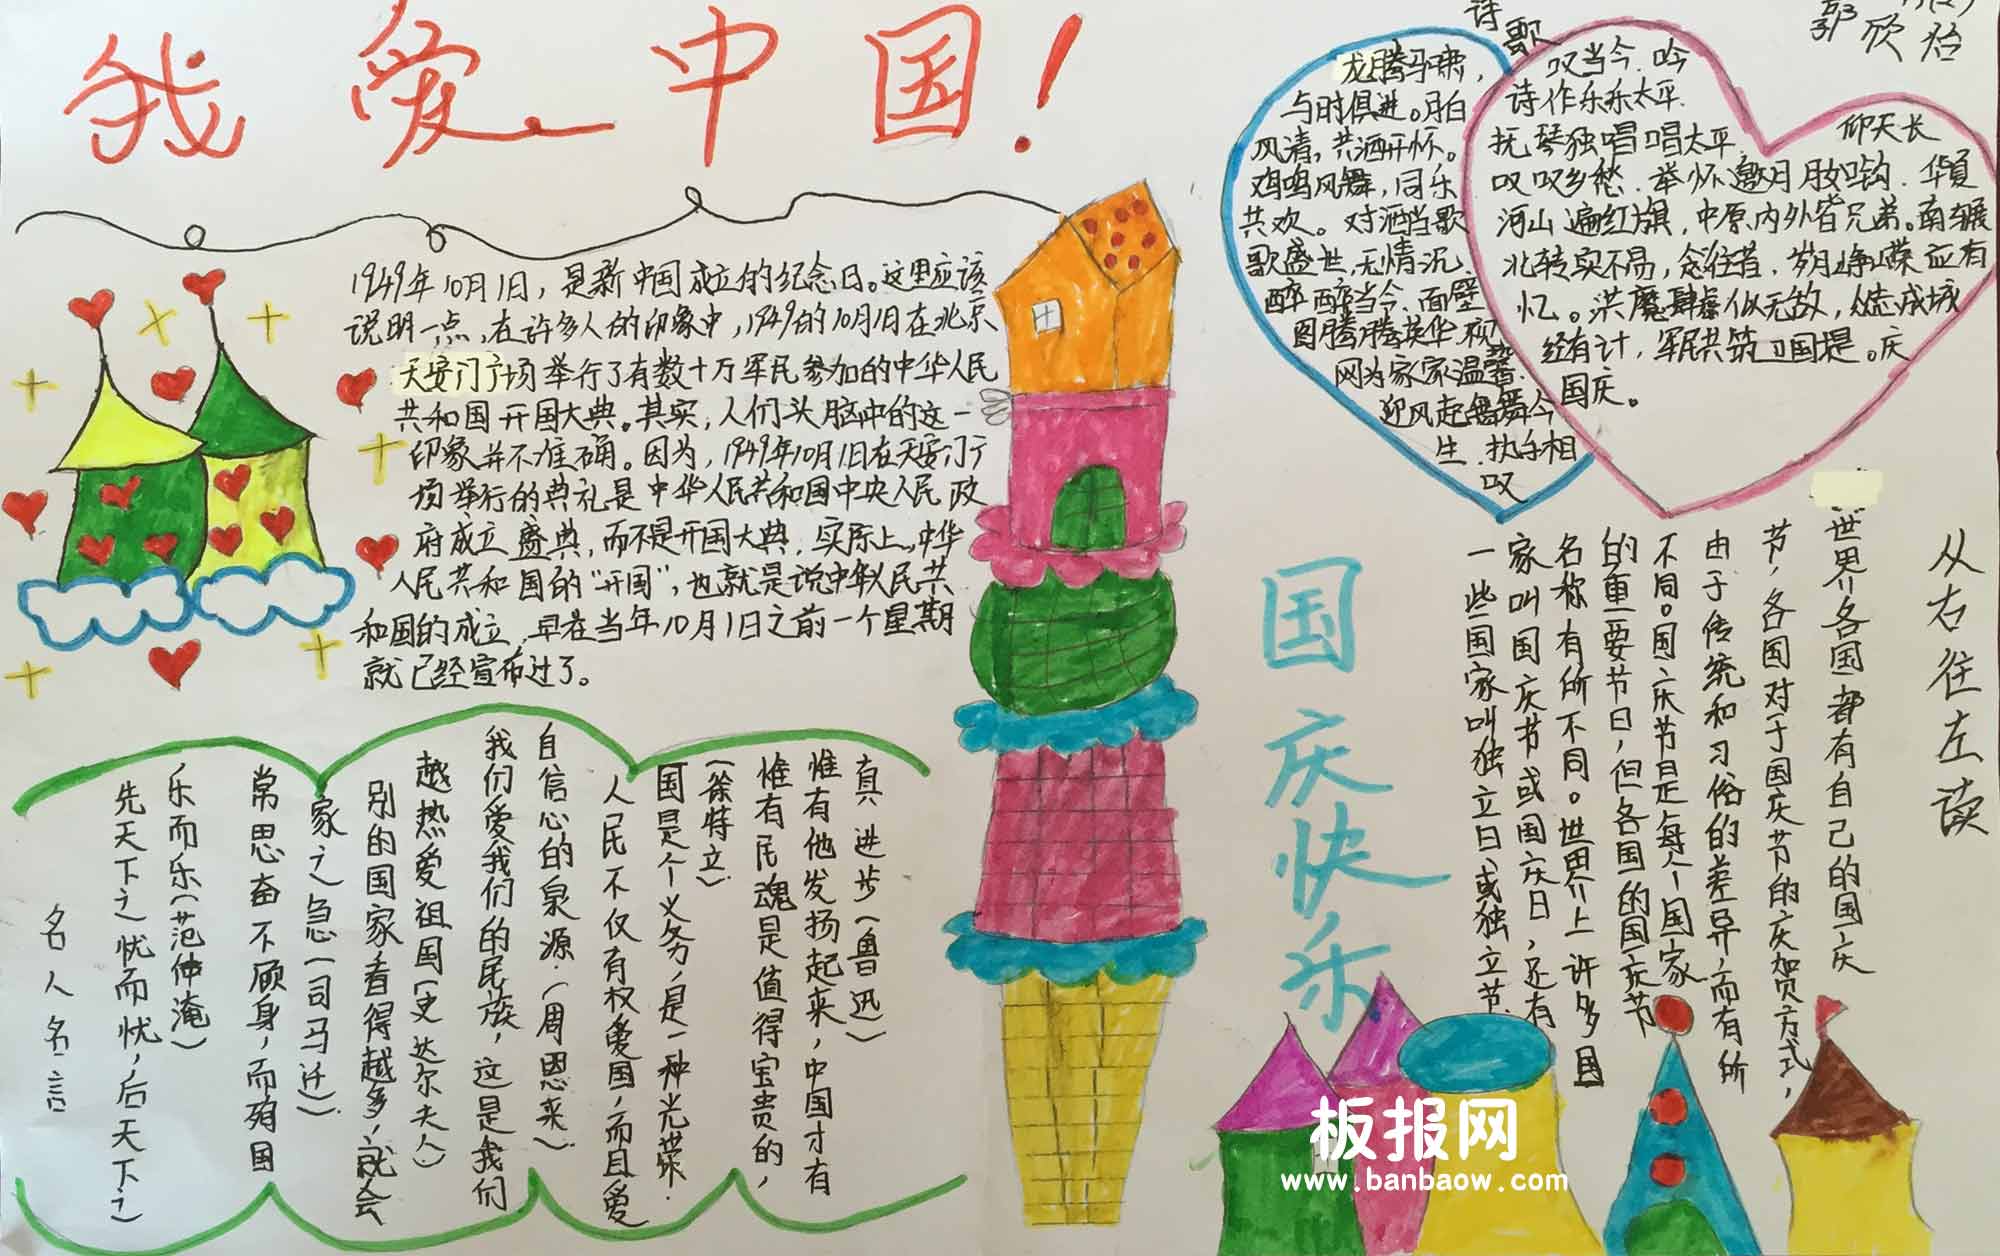 我爱中国！
1949年10月1日，是新中国成立的纪念日。这里应该
说明一点，在许多人的印象中，1949的10月1日在北京
天安门广场举行了有数十万军民参加的中华人民
共和国开国大典。其实，人们头脑中的这一
印象并不准确。因为，1949年10月1日在天安门广
场举行的典礼是中华人民共和国中央人民政
府成立盛典，而不是开国大典，实际上，中华
人民共和国的“开国”，也就是说中华人民共
和国的成立，早在当年10月1日之前一个星期
就已经宣布过了。
诗歌
龙腾马啸，
与时俱进。月白
风清，共洒开怀。
鸡鸣风舞，同乐
共欢。对酒当歌
歌盛世，无情沉
醉醉当今，面壁
图腾腾英华，视
网为家家温馨，
迎风起舞舞今
生，执手相
叹
叹当今，吟
诗作乐乐太平，
抚琴独唱唱太平，
仰天长
叹叹乡愁，举怀邀月月如钩，华夏
河山遍红旗，中原内外皆兄弟。南辗
北转实不易，念往昔，岁月峥嵘应有
忆。洪魔肆虐似无敌，众志成城
经有计，军民共筑卫国堤。庆
国庆。
国庆快乐
从右往左读
世界各国都有自己的国庆
节，各国对于国庆节的庆贺方式，
由于传统和习俗的差异，而有所
不同。国庆节是每个国家
的重要节日，但各国的国庆节
名称有所不同。世界上许多国
家叫国庆节或国庆日，还有
一些国家叫独立日或独立节
真进步（鲁迅）
惟有他发扬起来，中国才有
惟有民魂是值得宝贵的，
（徐特立）
国是个义务，是一种光荣.
人民不仅有权爱国，而且爱
自信心的泉源.（周恩来）
我们爱我们的民族，这是我们
越热爱祖国（史达尔夫人）
别的国家看得越多，就会
家之急（司马迁）
常思奋不顾身，而殉国
乐而乐（范仲淹）
先天下之忧而忧，后天下之
名人名言
板报网
www.banbaow.com